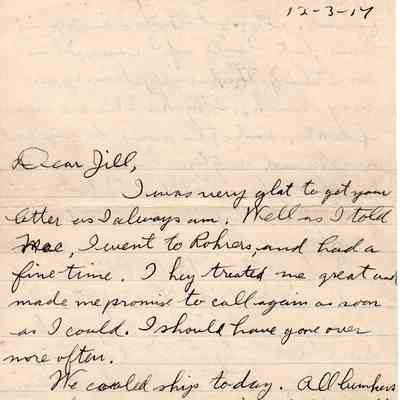 12-3-17
Dear Jill,
I was very glat to get your
letter as I always am. Well as I told
Mae, I went to Rohrers, and had a
fine time. They treated me great and
made me promise to call again as soon
as I could. I should have gone over
more often.
We coaled ship today. All bunkers